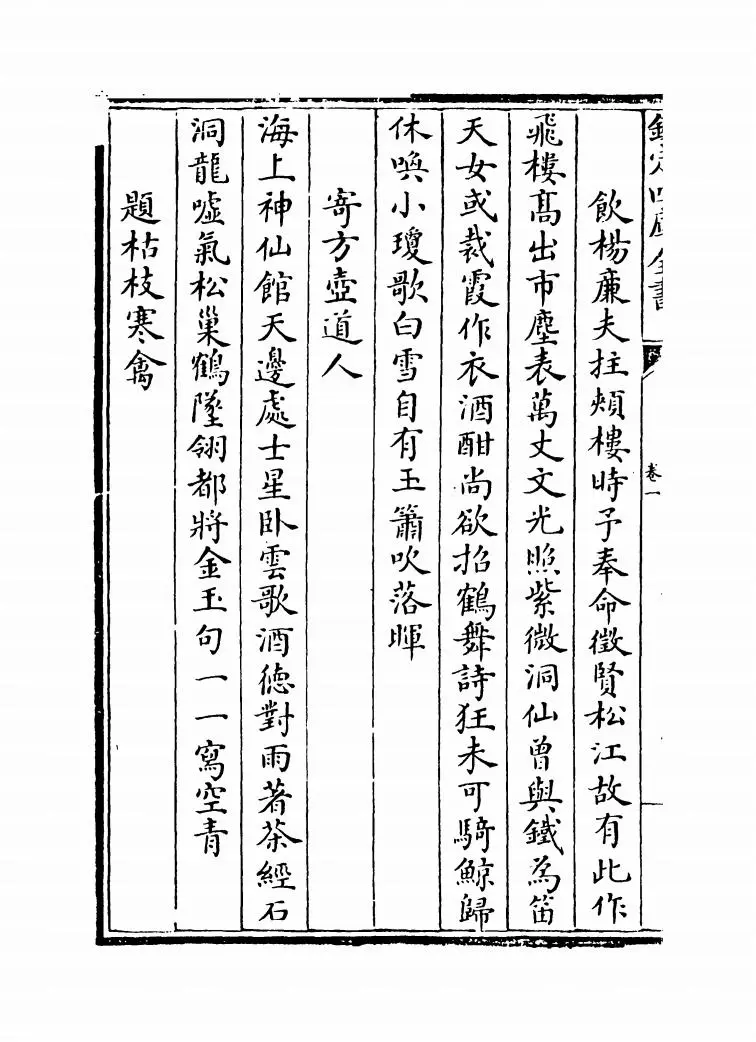 欽定四庫全書
卷一
飲楊亷夫拄頰樓時予奉命徴賢松江故有此作
飛樓髙出市塵表萬丈文光照紫微洞仙曾與鐵為笛
天女或裁霞作衣酒酣尚欲招鶴舞詩狂未可騎鯨歸
休喚小瓊歌白雪自有玉簫吹落暉
寄方壺道人
海上神仙館天邊處士星卧雲歌酒徳對雨著茶經石
洞龍嘘氣松巢鶴墜翎都將金玉句一一寫空青
題枯枝寒禽